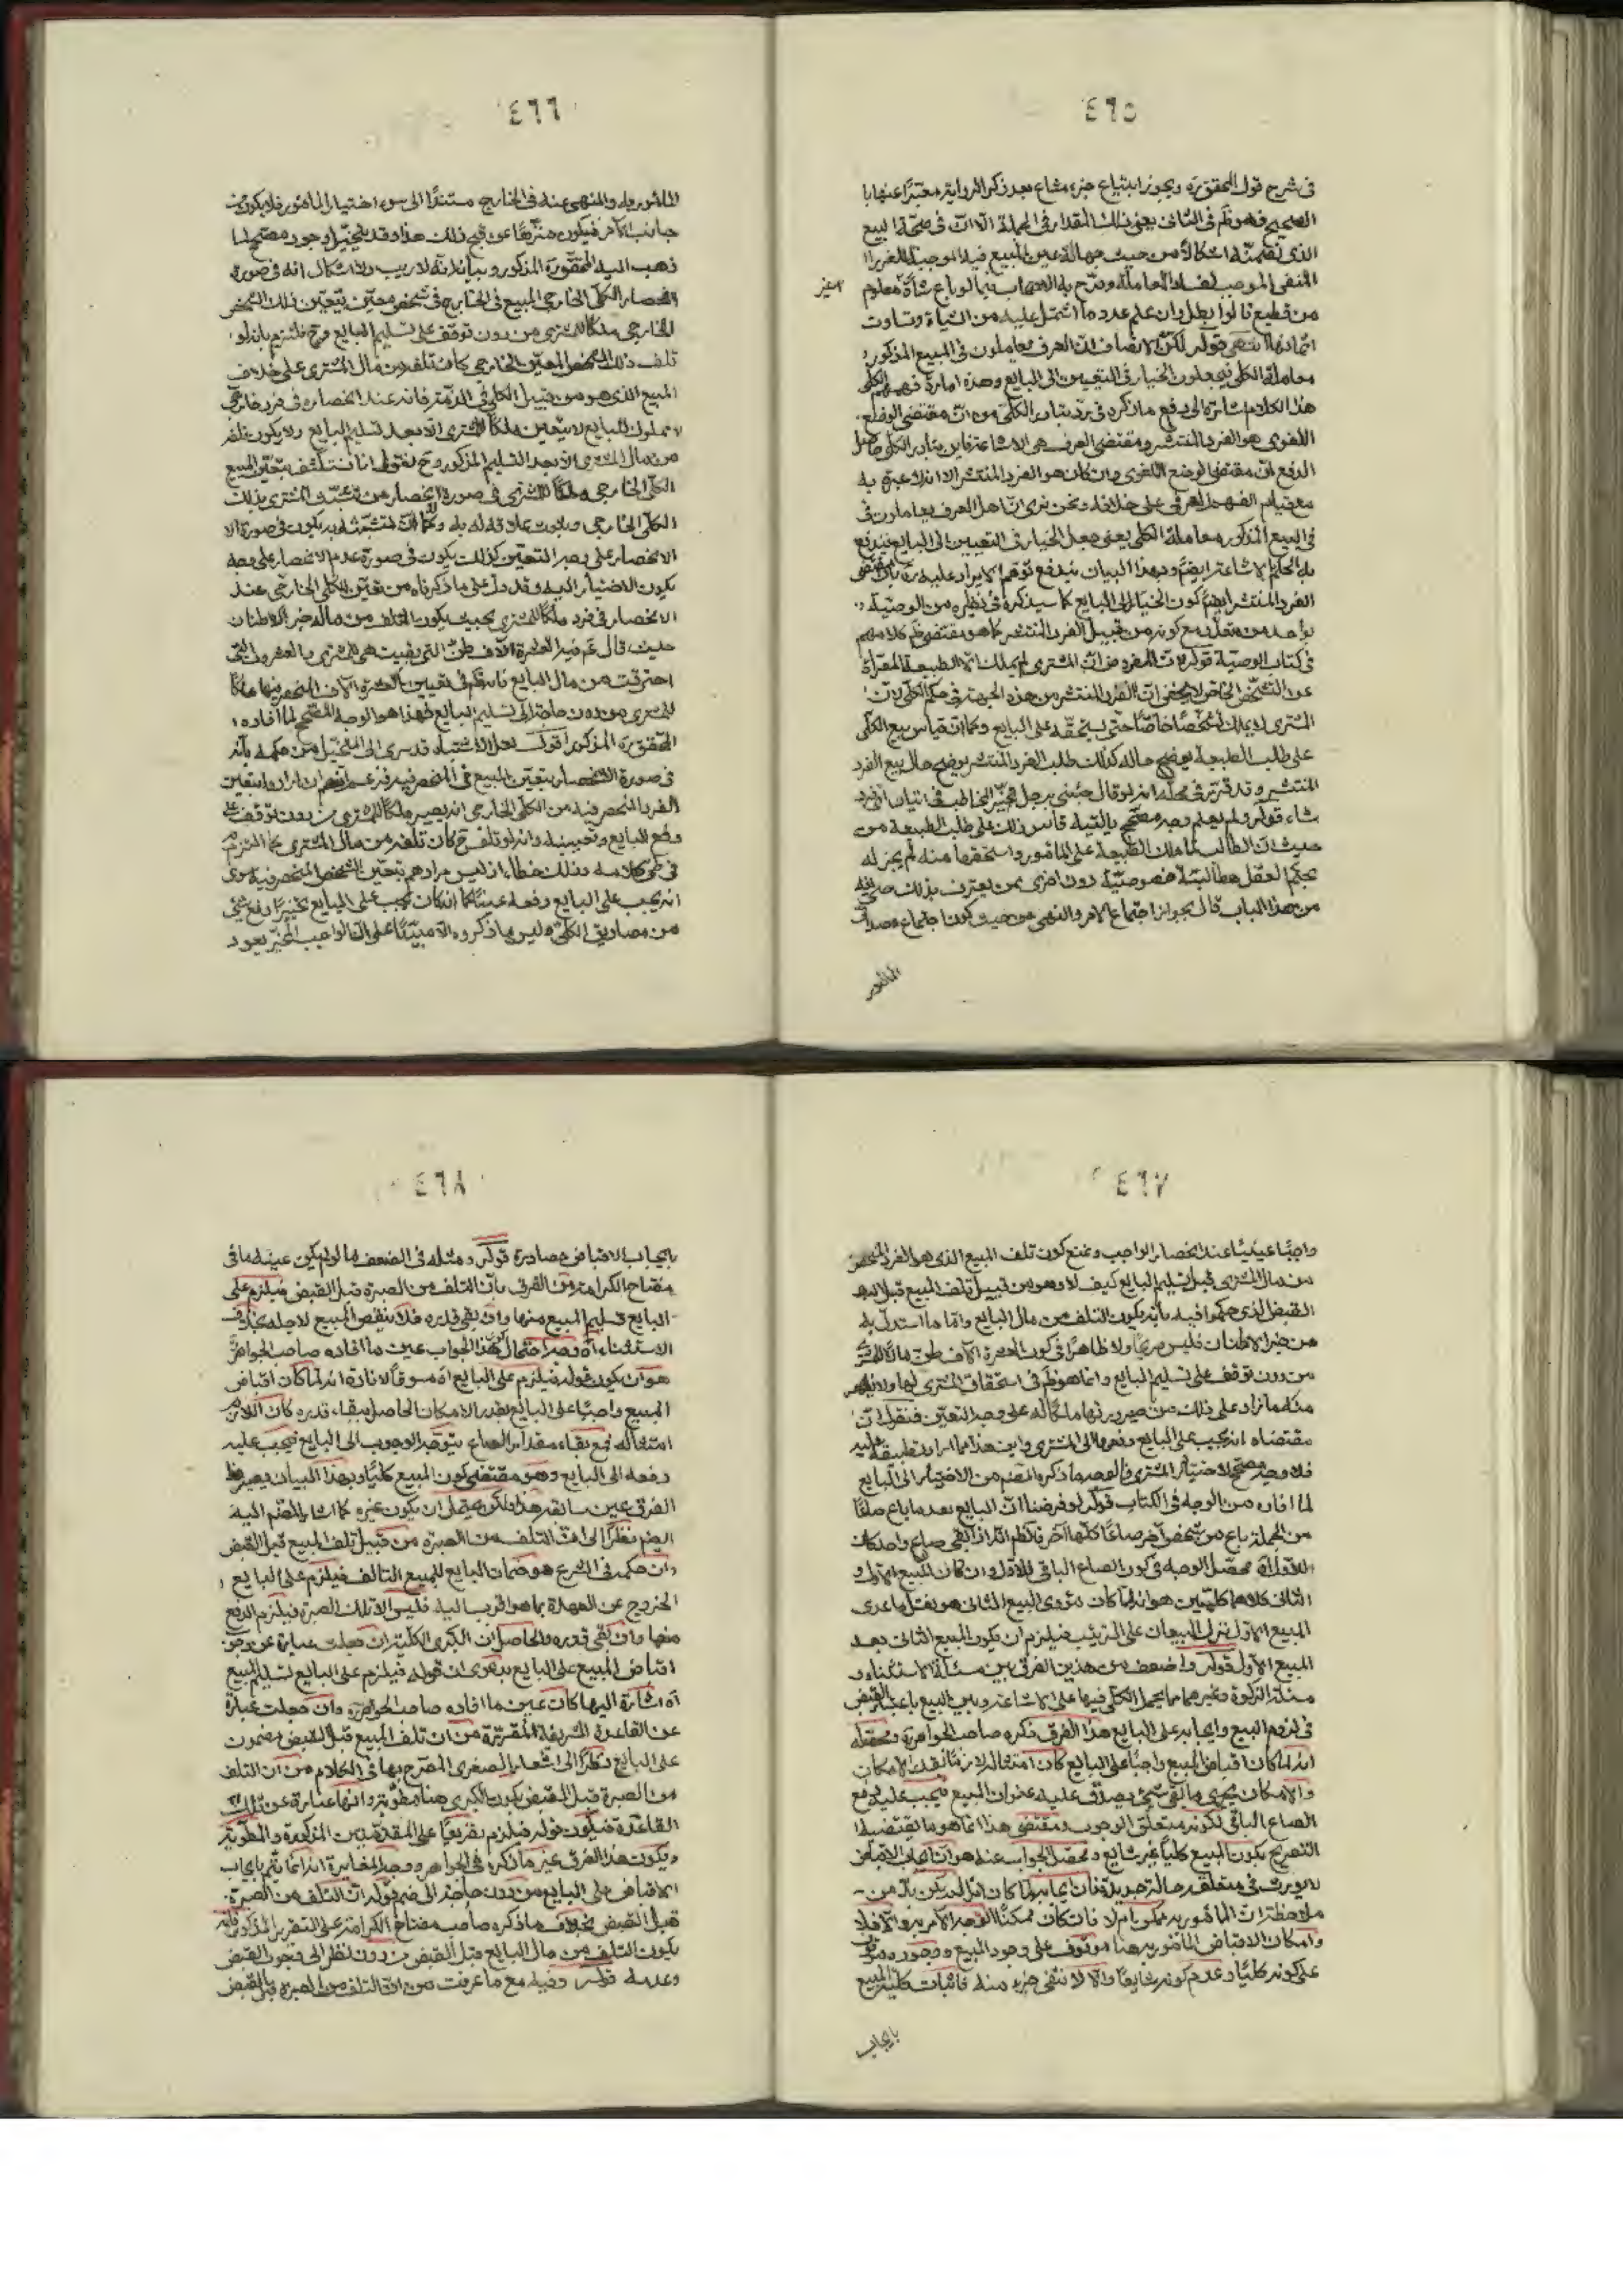 ٤٦٥
في شرح قول المحقق ره ويجوز ابتياع جزء مشاع بعد ذكر الرواية معبّرًا عنها با
الصحيح فهو ظم في الثاني يعني ذلك المقدار في الجملة الّا انّ في صحّة البيع
الذي تضمنته اشكالًا من حيث جهالة عين المبيع فيه الموجبة للغرر ا
المنفي الموجب لفساد المعاملة وصرّح به الاصحاب فيما لو باع شاة غير معلوم
من قطيع قالوا بطل وان علم عدد ما اشتمل عليه من الشياة وتساوت
اثمانها انتهى قوله لكنّ الانصاف انّ العرف يعاملون في المبيع المذكور
معاملة الكلي فيجعلون الخيار في التعيين الى البايع وهذه امارة فهمهم الكلي
هذا الكلام اشارة الى دفع ما ذكره في ردّ تبادر الكلّي من انّ مقتضى الوضع
اللغوي هو الفرد المنتشر ومقتضى العرف هي الاشاعة فاين تبادر الكلي حاصل
الدفع انّ مقتضى الوضع اللغوي وان كان هو الفرد المنتشر الا انه لا عبرة به
مع قيام الفهم العرفي على خلافه ونحن نرى انّ اهل العرف يعاملون في
في البيع المذكور معاملة الكلي يعني جعل الخيار في التعيين الى البايع فيندفع
به الحكم بالاشاعة ايضًا وبهذا البيان يندفع توهّم الايراد عليه ره بان مقتضى
الفرد المنتشر ايضًا كون الخيار الى البايع كما سيذكره في نظيره من الوصيّة
بواحد من متعدّد مع كونه من قبيل الفرد المنتشر كما هو مقتضى ظم كلامهم
في كتاب الوصيّة قوله لانّ المفروض انّ المشتري لم يملك الّا الطبيعة المعرّاة
عن التشخّص الخاص لا يخفى انّ الفرد المنتشر من هذه الجهة في حكم الكلّي لانّ
المشتري لا يملك تشخّصًا خاصًّا حتّى يستحقّه على البايع وكما انّ قياس بيع الكلّي
على طلب الطبيعة يوضح حاله كذلك طلب الفرد المنتشر يوضح حال بيع الفرد
المنتشر وقد قرّر في محلّه انه لو قال جئني برجل تخيّر المخاطب في اتيان ايّ فرد
شاء قوله ولم يعلم وجه مصحّح بالتيه قاس ذلك على طلب الطبيعة من
حيث انّ الطالب لمّا ملك الطبيعة على المأمور واستحقها منه لم يجز له
بحكم العقل مطالبة خصوصيّة دون اخرى
من هذا الباب قال بجواز اجتماع الامر والنهي من حيث كون اجتماع مصداق
المأمور
٤٦٦
المأمور به والمنهي عنه في الخارج مستندًا الى سوء اختيار المأمور فلا يكون من
جانب الآمر فيكون منزّهًا عن قبح ذلك هذا وقد يتخيّل وجود مصحّح لما
ذهب اليه المحقّق ره المذكور وبيانه انه لا ريب ولا اشكال انه في صورة
انحصار الكلّي الخارجي المبيع في الخارج في شخص معيّن يتعيّن ذلك الشخص
الخارجي ملكًا للمشتري من دون توقف على تسليم البايع وح نلتزم بانه لو
تلف ذلك الشخص المعيّن الخارجي كان تلفه من مال المشتري على خلاف
المبيع الذي هو من قبيل الكلي في الذمّة فانه عند انحصاره في فرد خارجي
مملوك للبايع لا يتعيّن ملكًا للمشتري الّا بعد تسليم البايع ولا يكون تلفه
من مال المشتري الّا بعد التسليم المذكور وح نقول انا نستكشف بتعيّن المبيع
الكلّي الخارجي ملكًا للمشتري في صورة الانحصار من تشبّث المشتري بذلك
الكلّي الخارجي وثبوت علاقة له به وكما انّ تشبّثه به يكون في صورة الا
الانحصار على وجه التعيّن كذلك يكون في صورة عدم الانحصار على وجه
يكون الاختيار اليه وقد دلّ على ما ذكرناه من تعيّن الكلي الخارجي عند
الانحصار في فرد ملكًا للمشتري بحيث يكون التلف من ماله خبر الاطنان
حيث قال ع فيه العشرة الآف طنّ التي بقيت هي للمشتري والعشرون التي
احترقت من مال البايع فانه ظم في تعيين العشرة الآف المنحصر فيها ملكًا
للمشتري من دون حاجة الى تسليم البايع فهذا هو الوجه المصحح لما افاده
المحقق ره المذكور اقول لعلّ الاشتباه قد سرى الى المتخيّل من حكمهم بأنه
في صورة الانحصار يتعيّن المبيع في المنحصر فيه فزعم انهم ارادوا بتعيّن
الفرد المنحصر فيه من الكلّي الخارجي انه يصير ملكًا للمشتري من دون توقف على
دفع البايع وتعيينه وانه لو تلف ح كان تلفه من مال المشتري كما التزم به
في طي كلامه وذلك خطأ اذ ليس مرادهم بتعيّن الشخص المنحصر فيه سوى
انه يجب على البايع دفعه عينًا كما انه كان يجب على البايع تخييرًا دفع شيء
من مصاديق الكلّي وليس ما ذكروه الّا مبنيًّا على انّ الواجب المخيّر يعود
٤٦٧
واجبًا عينيًا عند انحصار الواجب ونمنع كون تلف المبيع الذي هو الفرد المنحصر
من مال المشتري قبل تسليم البايع كيف لا وهو من قبيل تلف المبيع قبل
القبض الذي حكموا فيه بأنه يكون التلف من مال البايع وامّا ما استدلّ به
من خبر الاطنان فليس صريحًا ولا ظاهرًا في كون العشرة الآف طنّ مالًا للمشتري
من دون توقف على تسليم البايع وانما هو ظم في استحقاق المشتري لها ولا يظهر
منه ما زاد على ذلك من صيرورتها ملكًا له على وجه التعيّن فنقول انّ
مقتضاه انه يجب على البايع دفعها الى المشتري واين هذا مما اراد تطبيقه عليه
فلا وجه مصحّح لاختيار المشتري فالوجه ما ذكره المصم من الاختيار الى البايع
لما افاده من الوجه في الكتاب قوله لو فرضنا انّ البايع بعد ما باع صاعًا
من الجملة باع من شخص آخر صاعًا كليًّا آخر فالظم انّه اذا بقي صاع واحد كان
للأوّل آه محصّل الوجه في كون الصاع الباقي للاوّل وان كان المبيع الاوّل و
الثاني كلاهما كليّين هو انه لمّا كان مؤدى البيع الثاني هو نقل ما عدى
المبيع الاوّل نزل البيعان على الترتيب فيلزم ان يكون المبيع الثاني بعد
المبيع الاوّل قوله واضعف من هذين الفرق بين مسئلة الاستثناء و
مسئلة الزكوة وغيرهما مما يحمل الكلّي فيها على الاشاعة وبين البيع باعتبار القبض
في لزوم البيع وايجابه على البايع هذا الفرق ذكره صاحب الجواهر ره ومحصّله
انه لمّا كان اقباض المبيع واجبًا على البايع كان امتثاله لازمًا بقدر الامكان
والامكان يجري ما بقي شيء يصدق عليه عنوان المبيع فيجب عليه دفع
الصاع الباقي لكونه متعلّق الوجوب ومقتضى هذا انما هو ما يقتضيه ا
التصريح بكون المبيع كليًّا غير شايع ومحصّل الجواب عنه هو انّ ايجاب الاقباض
لا يورث في متعلقه حالة جديدة فانّ ايجابه لمّا كان لم يكن بدّ من
ملاحظة انّ المأمور به ممكن ام لا فان كان ممكنًا اتّجه الامر به والّا فلا
وامكان الاقباض المأمور به هنا موقوف على وجود المبيع ووجوده موقوف
على كونه كليًّا وعدم كونه شايعًا والّا لانتفى جزء منه فاثبات كليّة المبيع
بايجاب
٤٦٨
بايجاب الاقباض مصادرة قوله ومثله في الضعف ما لو لم يكن عينه ما في
مفتاح الكرامة من الفرق بانّ التلف من الصبرة قبل القبض فيلزم على
البايع تسليم المبيع منها وان بقي قدره فلا ينقص المبيع لاجله بخلاف
الاستثناء آه وجه احتمال كون هذا الجواب عين ما افاده صاحب الجواهر ره
هو ان يكون قوله فيلزم على البايع آه مسوقًا لافادة انه لمّا كان اقباض
المبيع واجبًا على البايع بقدر الامكان الحاصل ببقاء قدره كان اللازم
امتثاله فمع بقاء مقدار الصاع يتوجّه الوجوب الى البايع فيجب عليه
دفعه الى البايع وهو مقتضى كون المبيع كليًّا وبهذا البيان يصير هذا
الفرق عين سابقه هذا ولكن يحتمل ان يكون غيره كما اشار المصم اليه
ايضم نظرًا الى انّ التلف من الصبرة من قبيل تلف المبيع قبل القبض
وان حكمه في الشرع هو ضمان البايع للمبيع التالف فيلزم على البايع
الخروج عن العهدة بما هو اقرب اليه فليس الّا تلك الصبرة فيلزم الدفع
منها وان بقي قدره والحاصل ان الكبرى الكلية ان جعلت عبارة عن وجوب
اقباض المبيع على البايع بدعوى ان قوله فيلزم على البايع تسليم المبيع
آه اشارة اليها كان عين ما افاده صاحب الجواهر ره وان جعلت عبارة
عن القاعدة الشريفة المقرّرة من ان تلف المبيع قبل القبض مضمون
على البايع نظرًا الى اشعار الصغرى المصرّح بها في الكلام من ان التلف
من الصبرة قبل القبض بكون الكبرى هنا مطويّة وانها عبارة عن تلك
القاعدة فيكون قوله فيلزم تفريعًا على المقدّمتين المذكورة والمطويّة
ويكون هذا الفرق غير ما ذكره في الجواهر ووجه المغايرة انه انّما يتمّ بايجاب
الاقباض على البايع من دون حاجة الى ضم قوله انّ التلف من الصبرة
قبل القبض بخلاف ما ذكره صاحب مفتاح الكرامة على التقرير المذكور فانه
يكون التلف من مال البايع قبل القبض من دون نظر الى وجوب القبض
وعدمه قوله وفيه مع ما عرفت من انّ التلف من الصبرة قبل القبض